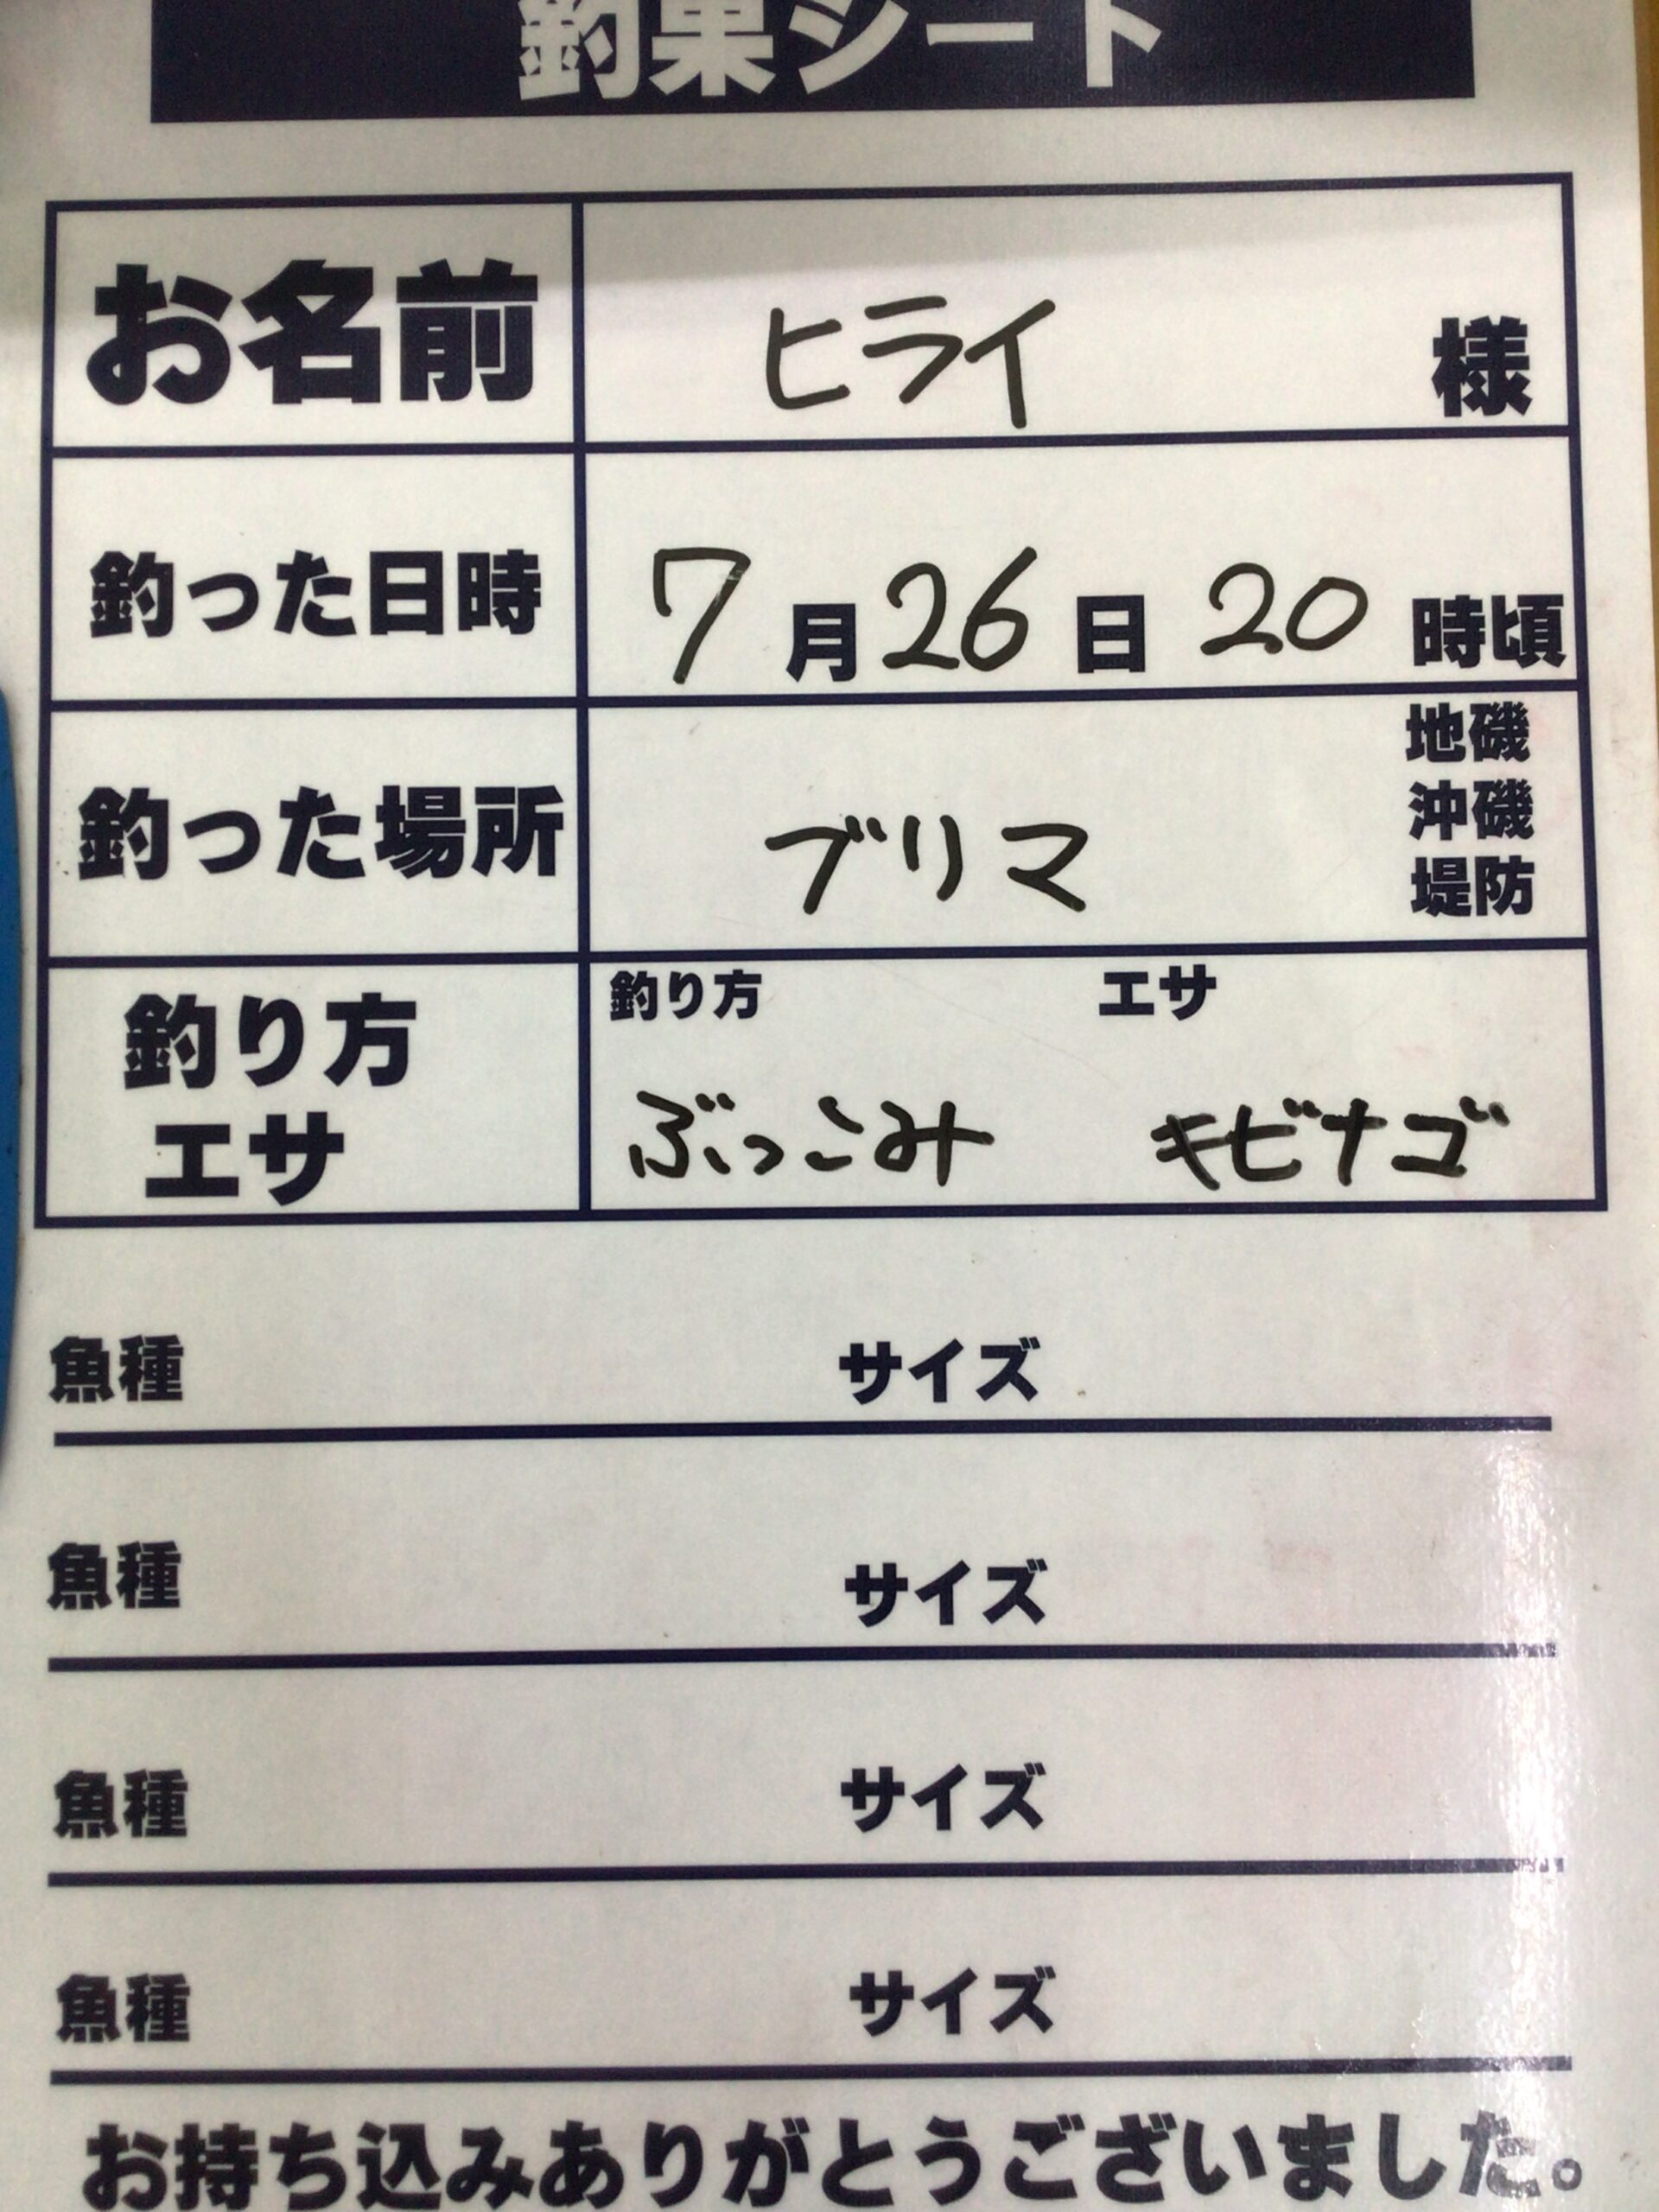 釣果シート
お名前 ヒライ 様
釣った日時 7月26日 20時頃
釣った場所 ブリマ 地磯
沖磯
堤防
釣り方 エサ
釣り方
エサ
ぶっこみ キビナゴ
魚種 サイズ
魚種 サイズ
魚種 サイズ
魚種 サイズ
お持ち込みありがとうございました。